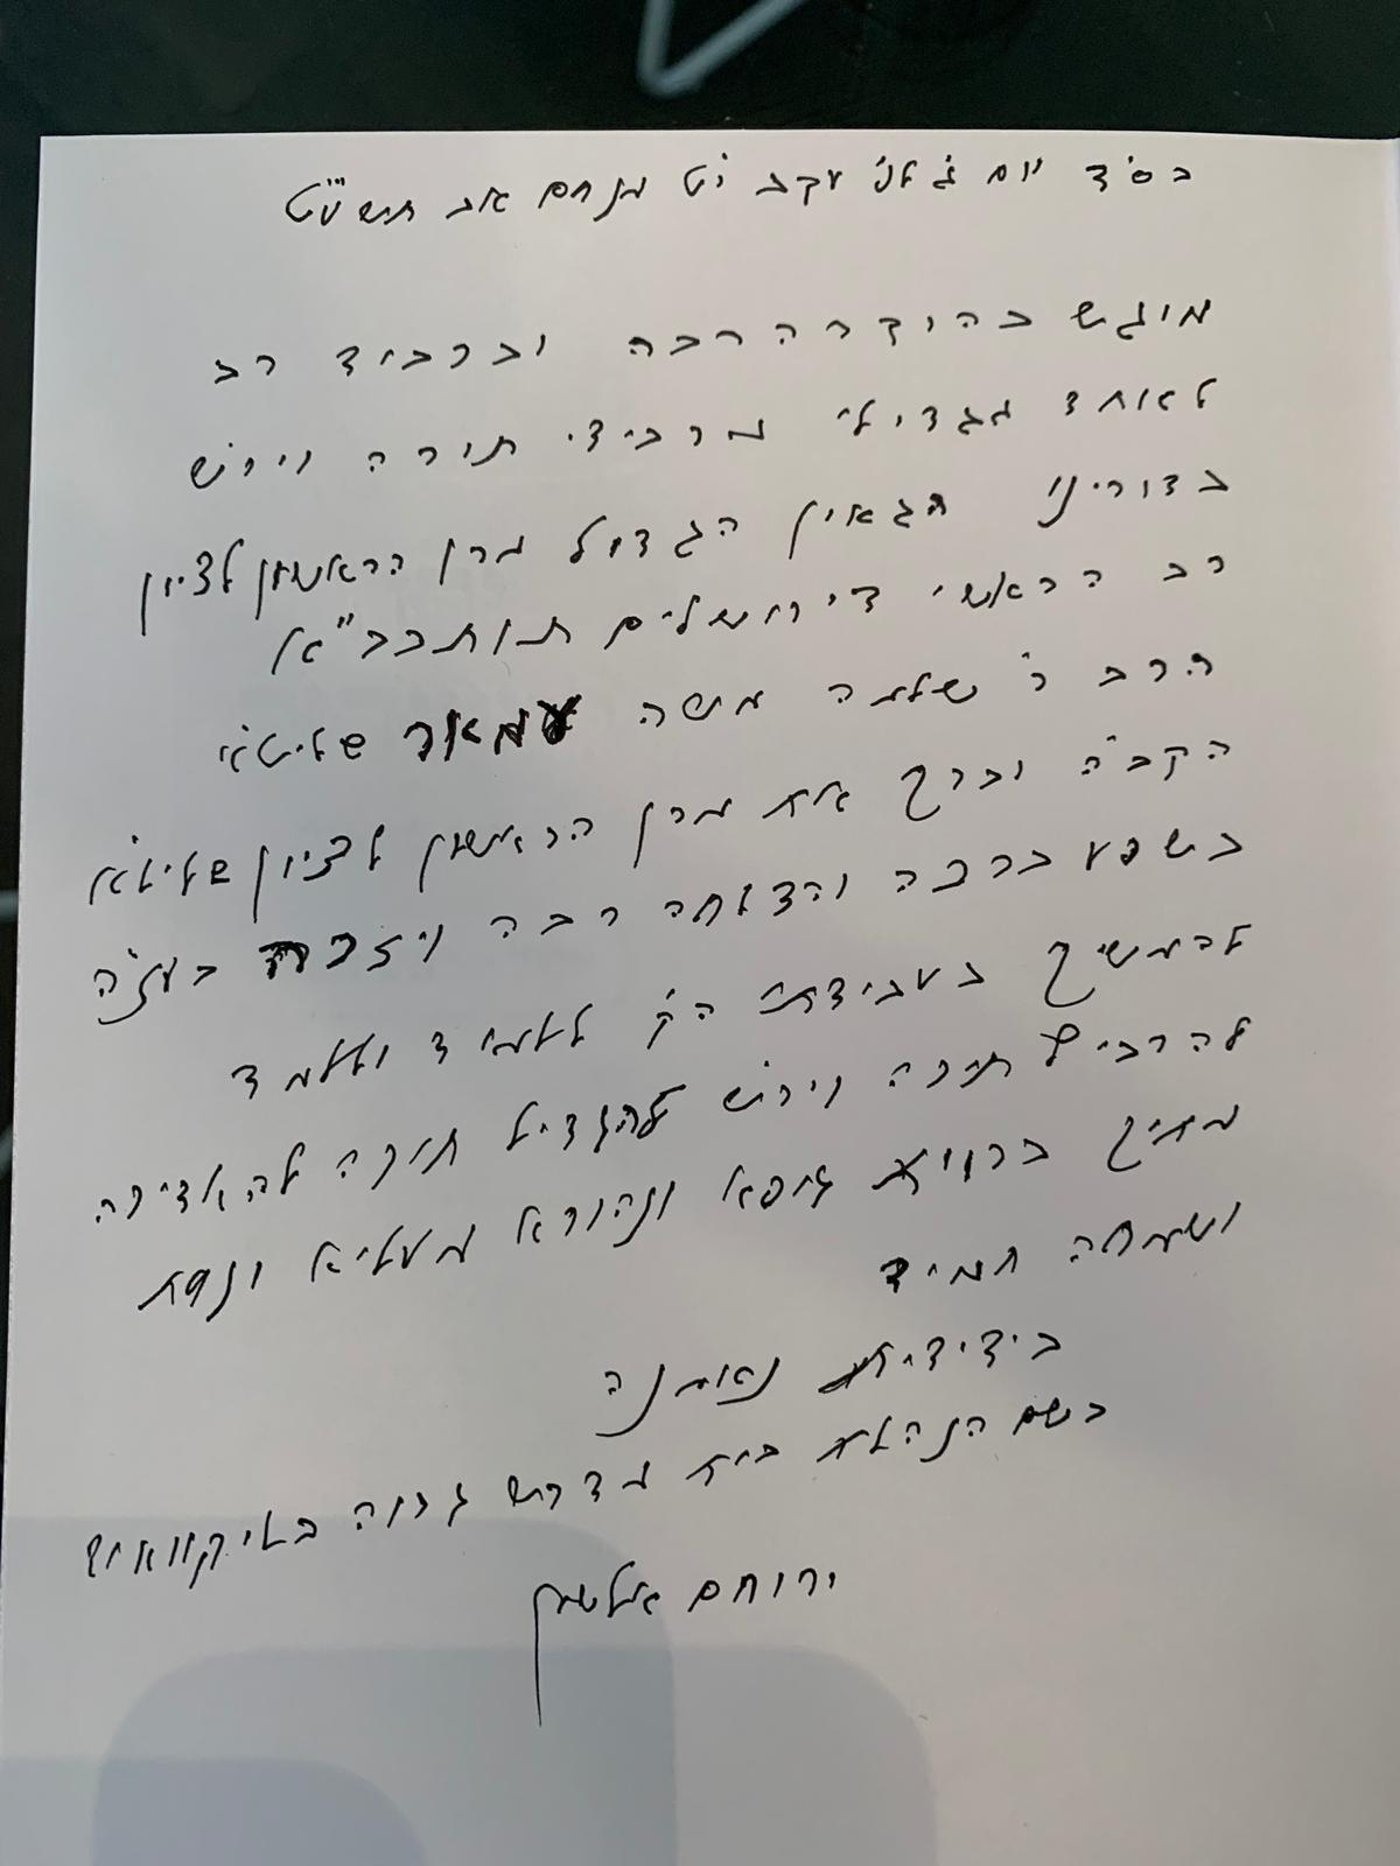 בס"ד יום ג' לפ' עקב י"ט מנחם אב תשע"ט
מוגש בהוקרה רבה ובכבוד רב
לאחד מגדולי מרביצי תורה ויר"ש
בדורינו הגאון הגדול מרן הראשון לציון
רב הראשי דירושלים תותבב"א
הרב ר' שלמה משה עמאר שליט"א
הקב"ה יברך את מרן הראשון לציון שליט"א
בשפע ברכה והצלחה רבה ויזכה בעז"ה
להמשיך בעבודתו הק' ללמוד וללמד
להרביץ תורה ויר"ש להגדיל תורה להאדירה
מתוך בריות גופא ונהורא מעליא ונחת
ושמחה תמיד
בידידות נאמנה
בשם הנהלת בית מדרש גבוה בלייקוואוד
ירוחם אולשין